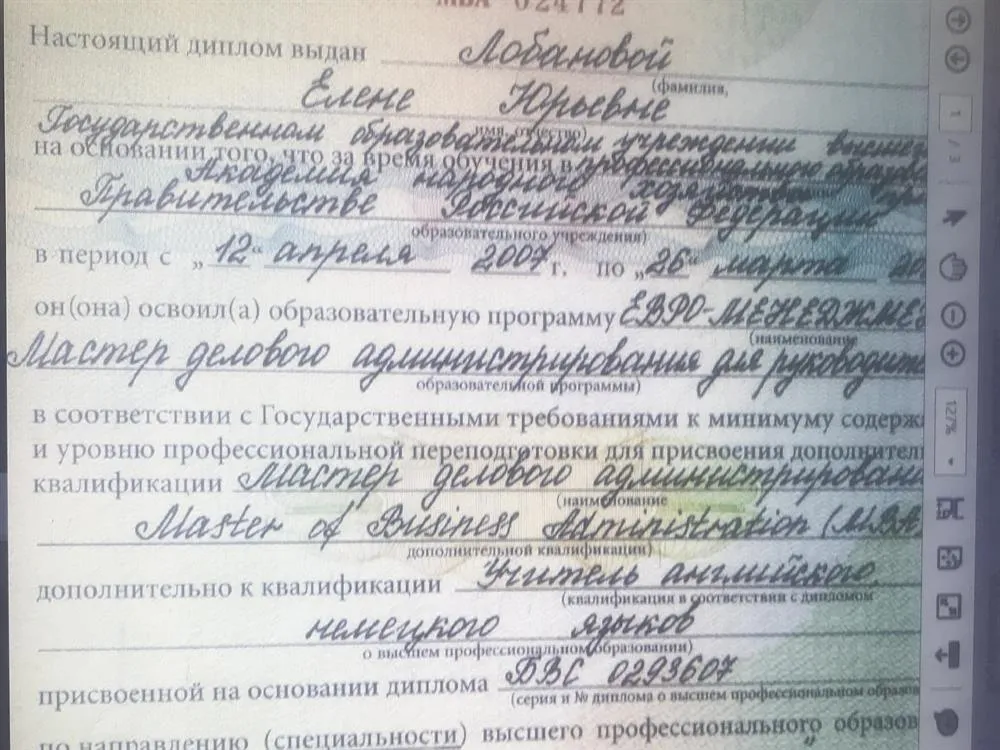 МВА 024772
Настоящий диплом выдан Лобановой
(фамилия,
Елене Юрьевне
имя, отчество)
Государственном образовательном учреждении высшего
на основании того, что за время обучения в профессионального образова
Академия народного хозяйства при
Правительстве Российской Федерации
образовательного учреждения)
в период с „12“ апреля 2007 г. по „26“ марта 20
он(она) освоил(а) образовательную программу ЕВРО-МЕНЕДЖМЕ
(наименование
Мастер делового администрирования для руководите
образовательной программы)
в соответствии с Государственными требованиями к минимуму содерж
и уровню профессиональной переподготовки для присвоения дополнител
квалификации Мастер делового администрирован
(наименование
Master of Business Administration (MBA
дополнительной квалификации)
дополнительно к квалификации Учитель английского,
(квалификация в соответствии с дипломом
немецкого языков
о высшем профессиональном образовании)
присвоенной на основании диплома БВС 0293607
(серия и № диплома о высшем профессиональном образов
по направлению (специальности) высшего профессионального образов
1
/ 3
127%